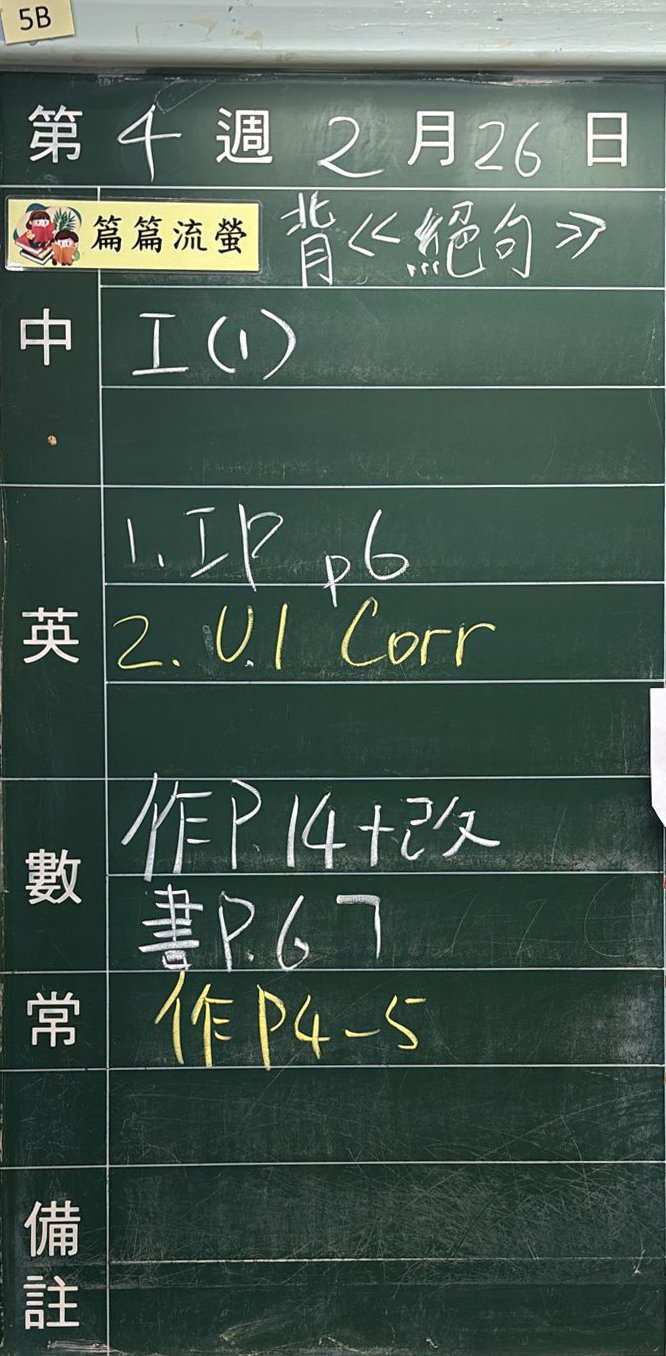 5B
第 4 週 2 月 26 日
篇篇流螢 背《絕句》
中 工(1)
英 1. IP p6
2. U.1 Corr
數 作P.14+改
書P.67
常 作P4-5
備註